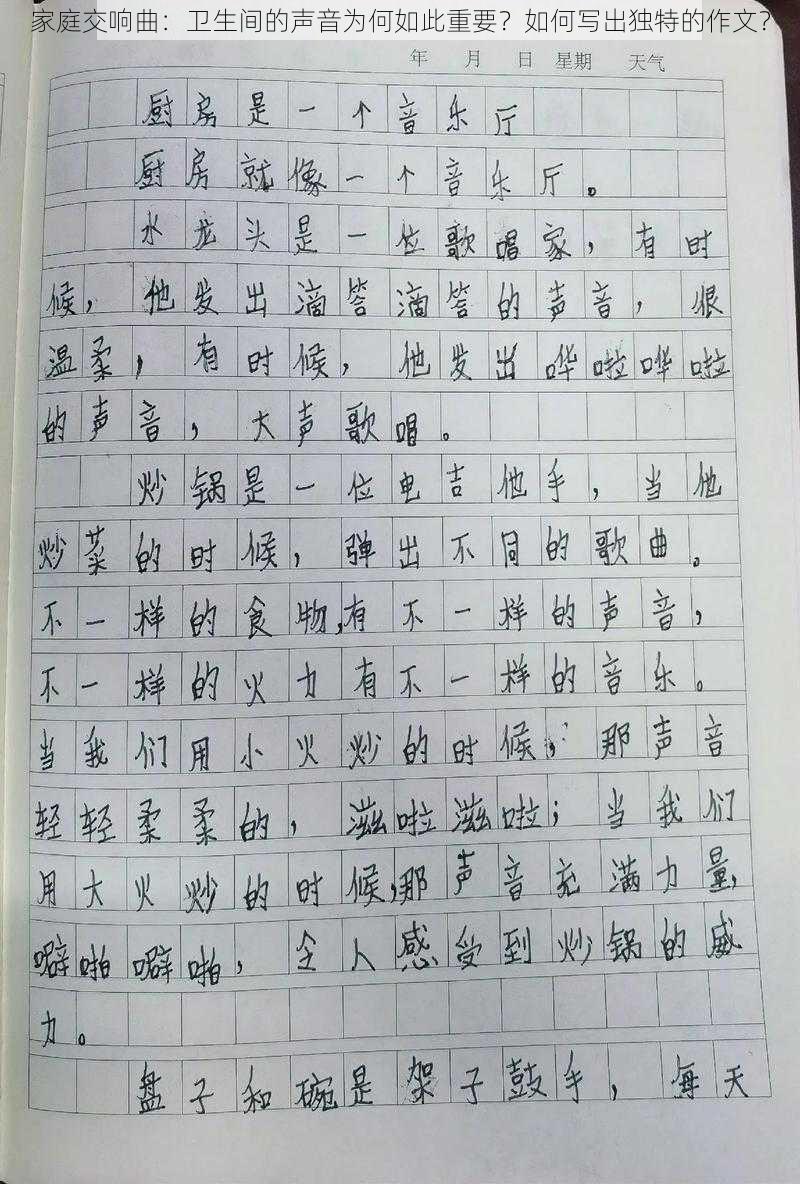 家庭交响曲：卫生间的声音为何如此重要？如何写出独特的作文？
年 月 日 星期 天气
厨房是一个音乐厅
厨房就像一个音乐厅。
水龙头是一位歌唱家，有时
候，他发出滴答滴答的声音，很
温柔，有时候，他发出哗啦哗啦
的声音，大声歌唱。
炒锅是一位电吉他手，当他
炒菜的时候，弹出不同的歌曲。
不一样的食物，有不一样的声音，
不一样的火力有不一样的音乐。
当我们用小火炒的时候，那声音
轻轻柔柔的，滋啦滋啦；当我们
用大火炒的时候，那声音充满力量，
噼啪噼啪，令人感受到炒锅的威
力。
盘子和碗是架子鼓手，每天